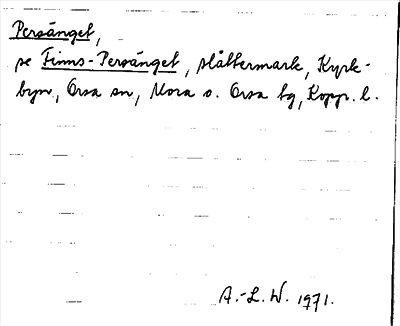 Persänget,
se Finns-Persänget, slåttermark, Kyrk-
byn, Orsa sn, Mora o. Orsa tg, Kopp. l.
A.-L. W. 1971.